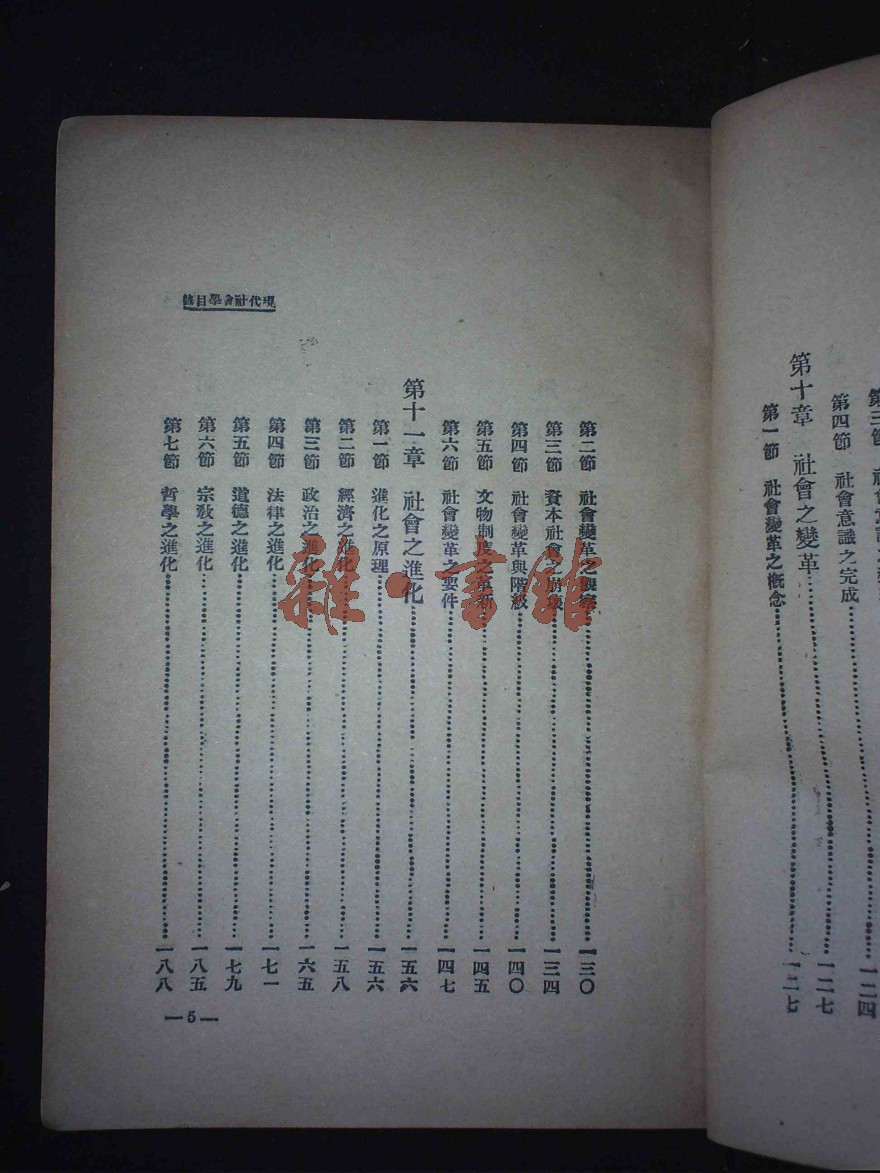 第三節 社會意識之
第四節 社會意識之完成……一二四
第十章 社會之變革……一二七
第一節 社會變革之概念……一二七
現代社會學目錄
第二節 社會變革之觀察……一三〇
第三節 資本社會之崩壞……一三四
第四節 社會變革與階級……一四〇
第五節 文物制度之革新……一四五
第六節 社會變革之要件……一四七
第十一章 社會之進化……一五六
第一節 進化之原理……一五六
第二節 經濟之進化……一五八
第三節 政治之進化……一六五
第四節 法律之進化……一七一
第五節 道德之進化……一七九
第六節 宗教之進化……一八五
第七節 哲學之進化……一八八
—5—
雜·書館